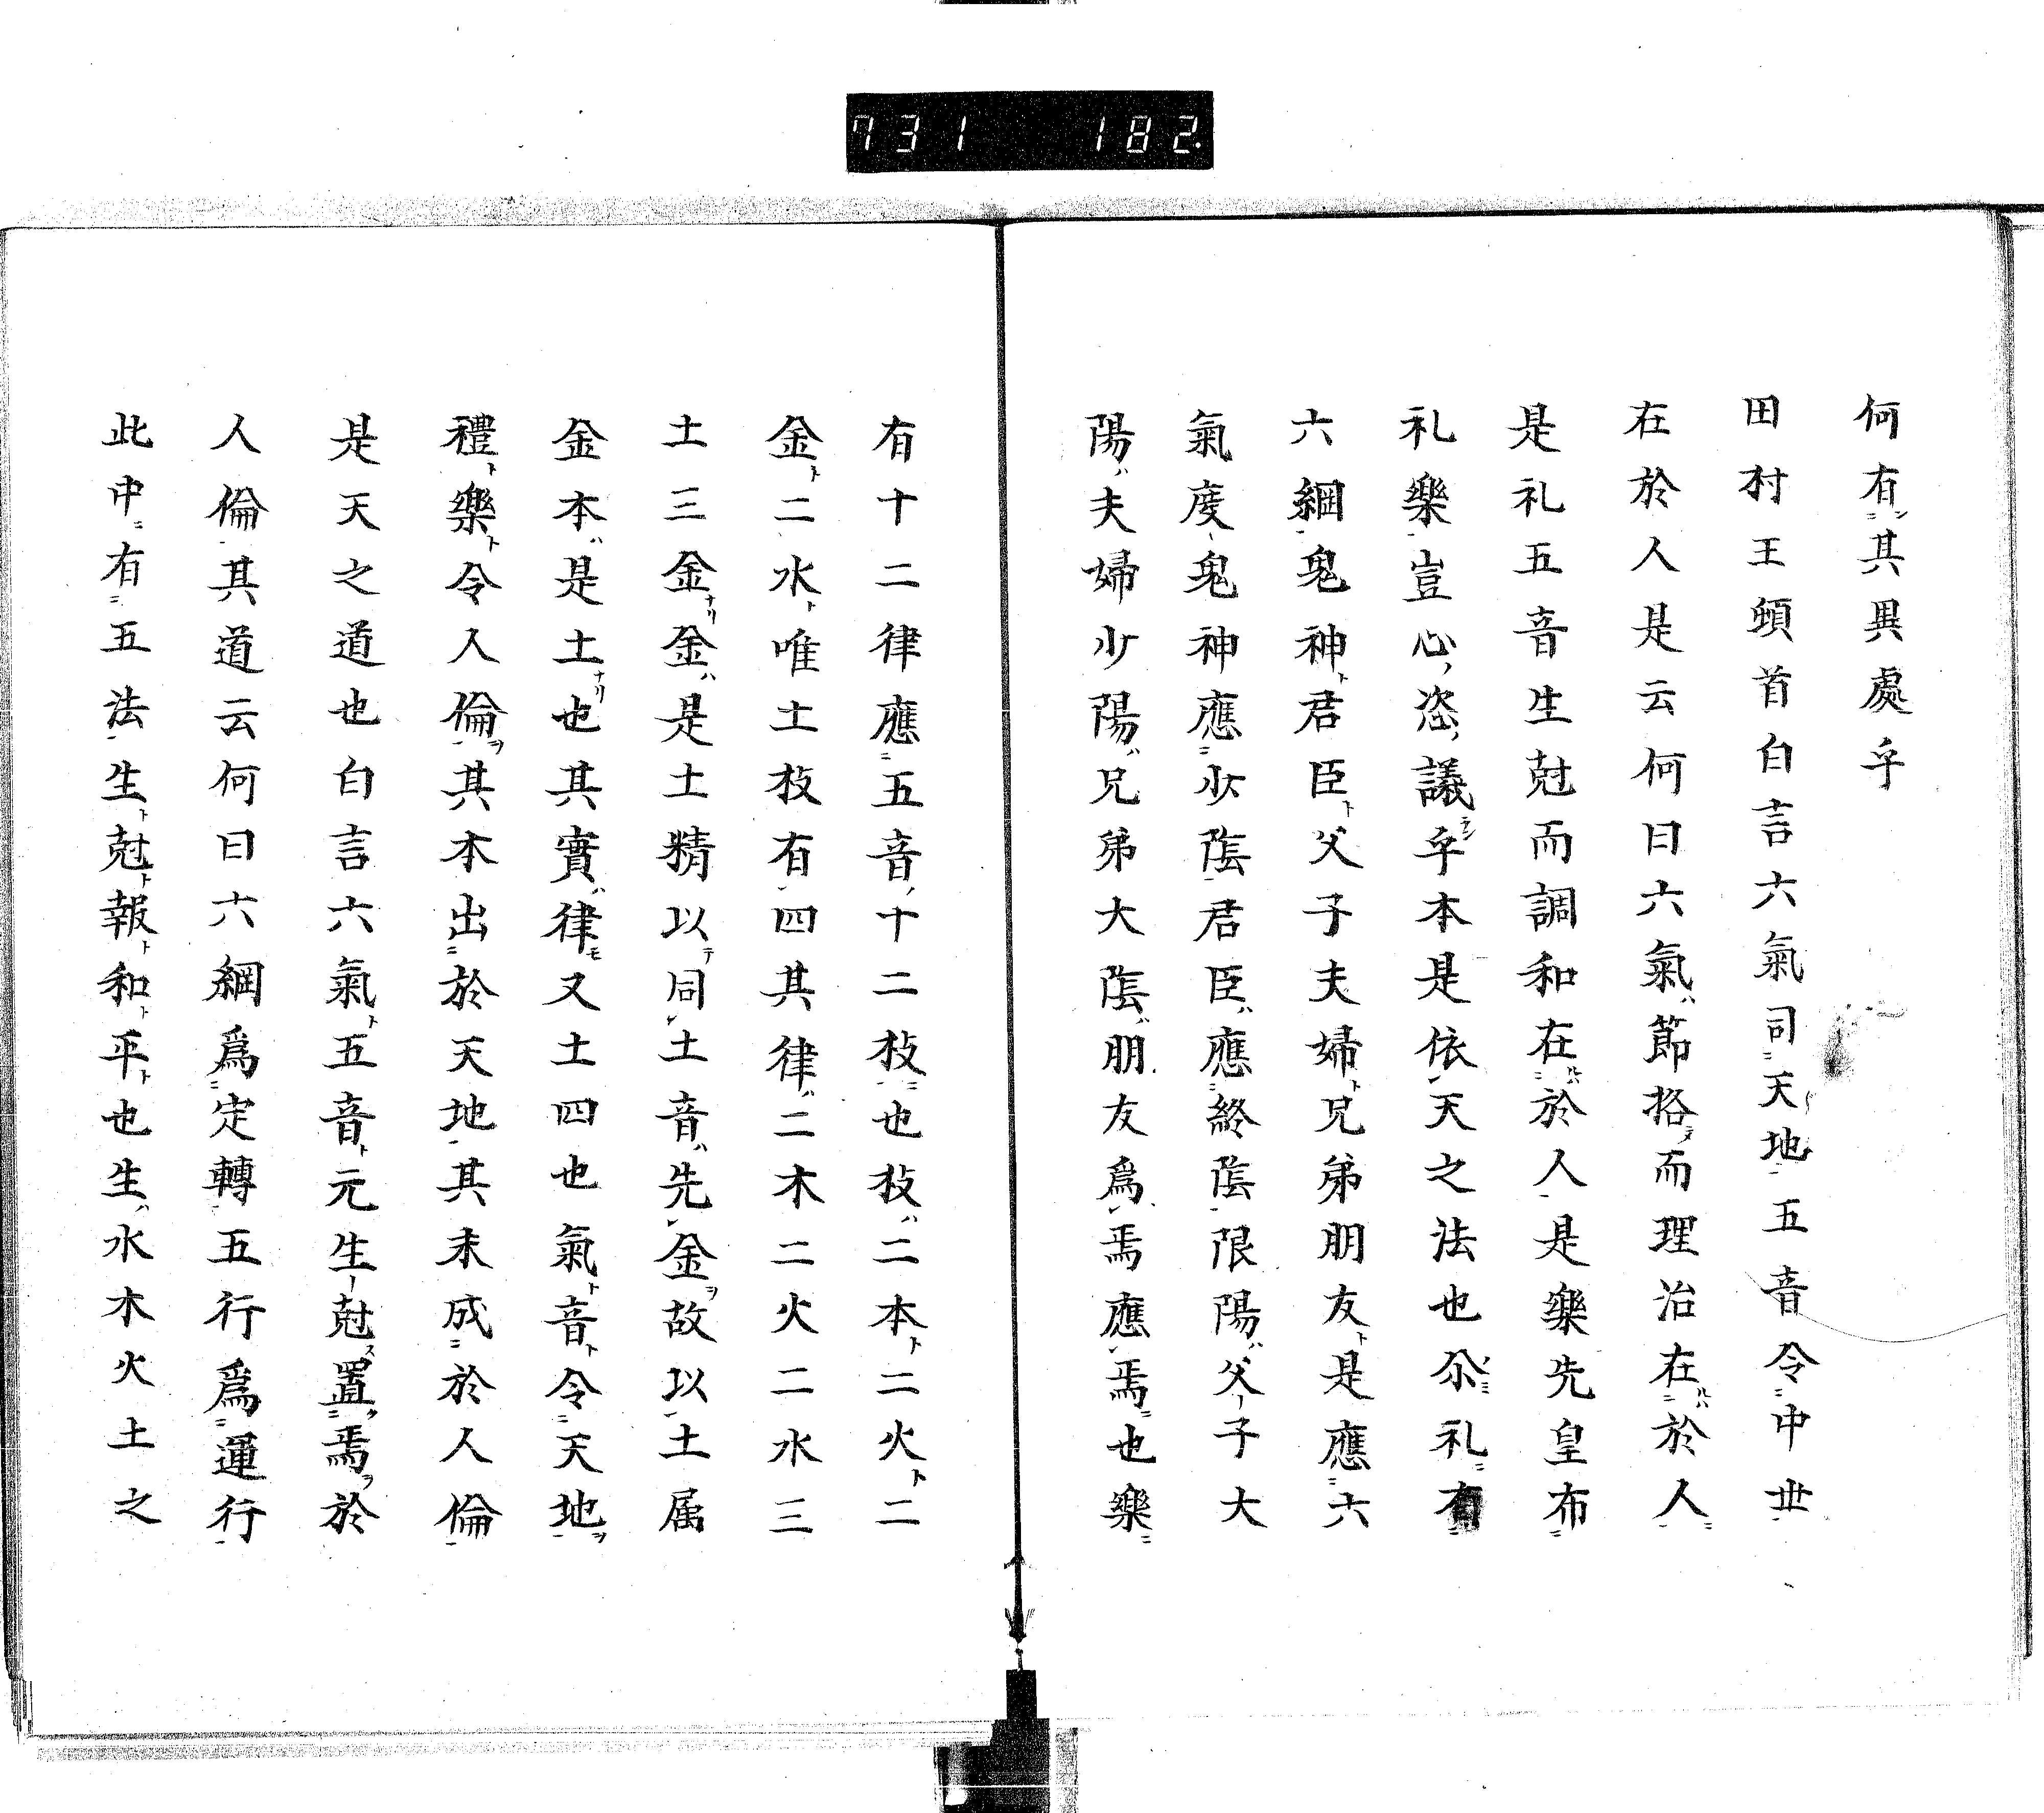 731 182
何有其異處乎
田村王頓首白言六氣司天地五音令中世
在於人是云何曰六氣節格而理治在於人
是礼五音生尅而調和在於人是樂先皇布
礼樂豈心恣議乎本是依天之法也尒礼有
六綱鬼神君臣父子夫婦兄弟朋友是應六
氣度鬼神應少陰君臣應終陰限陽父子大
陽夫婦少陽兄弟大陰朋友爲焉應焉也樂
有十二律應五音十二枝也枝二本二火二
金二水唯土枝有四其律二木二火二水三
土三金金是土精以同土音先金故以土属
金本是土也其實律又土四也氣音令天地
禮樂令人倫其本出於天地其末成於人倫
是天之道也白言六氣五音元生尅置焉於
人倫其道云何曰六綱爲定轉五行爲運行
此中有五法生尅報和平也生水木火土之